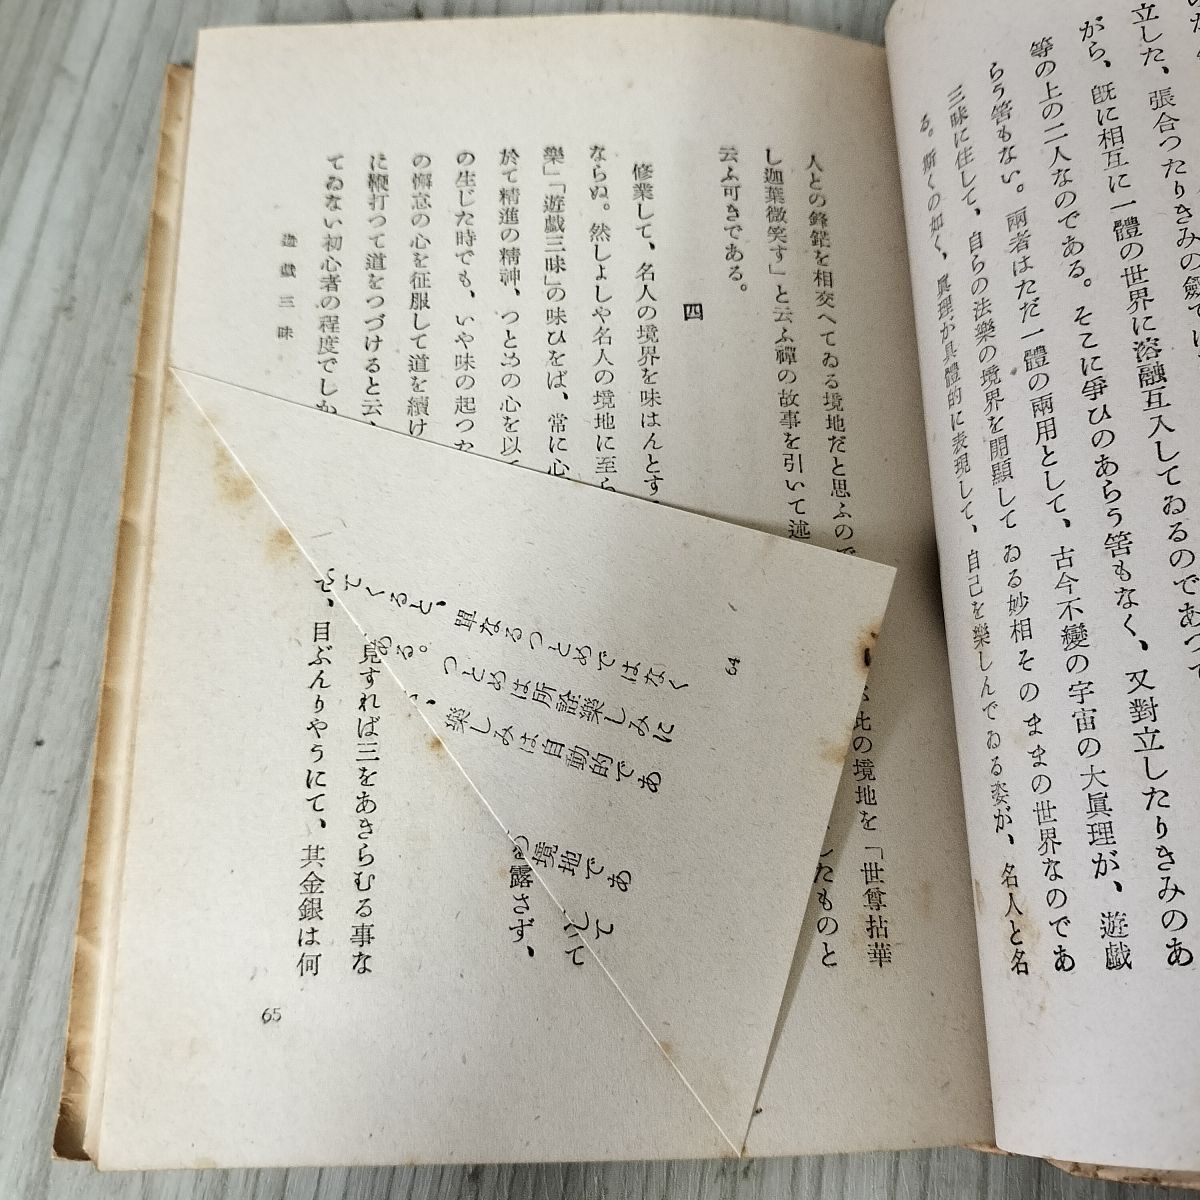 立した、張合つたりきみの劔では
がら、既に相互に一體の世界に溶融互入してゐるのであつて
等の上の二人なのである。そこに爭ひのあらう筈もなく、又對立したりきみのあ
らう筈もない。兩者はただ一體の兩用として、古今不變の宇宙の大眞理が、遊戲
三昧に住して、自らの法樂の境界を開顯してゐる妙相そのままの世界なのであ
る。斯くの如く、眞理が具體的に表現して、自己を樂しんでゐる姿が、名人と名
人との鋒鋩を相交へてゐる境地だと思ふので
此の境地を「世尊拈華
し迦葉微笑す」と云ふ禪の故事を引いて述
したものと
云ふ可きである。
四
修業して、名人の境界を味はんとす
ならぬ。然しよしや名人の境地に至ら
樂」「遊戲三昧」の味ひをば、常に心
於て精進の精神、つとめの心を以
の生じた時でも、いや味の起つた
の懈怠の心を征服して道を續け
に鞭打つて道をつづけると云
てゐない初心者の程度でしか
露さず、
見すれば三をあきらむる事な
、目ぶんりやうにて、其金銀は何
遊戲三昧
65
64
てくると、單なるつとめではなく
ある。つとめは所詮樂しみに
、樂しみは自動的であ
の境地であ
して
て